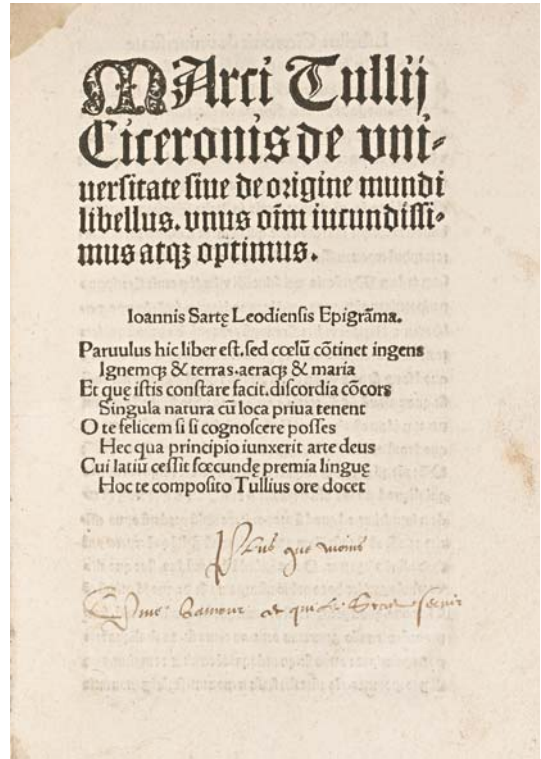 MArci Tullij
Ciceronis de vni-
uersitate siue de origine mundi
libellus. vnus oīm iucundissi-
mus atqꝫ optimus.
Ioannis Sartę Leodiensis Epigrāma.
Paruulus hic liber est. sed cœlū cōtinet ingens
Ignemqꝫ & terras. aeraqꝫ & maria
Et quę istis constare facit. discordia cōcors
Singula natura cū loca priua tenent
O te felicem si si cognoscere posses
Hec qua principio iunxerit arte deus
Cui latiū cessit fœcundę premia linguę
Hoc te composito Tullius ore docet
Plus que moins